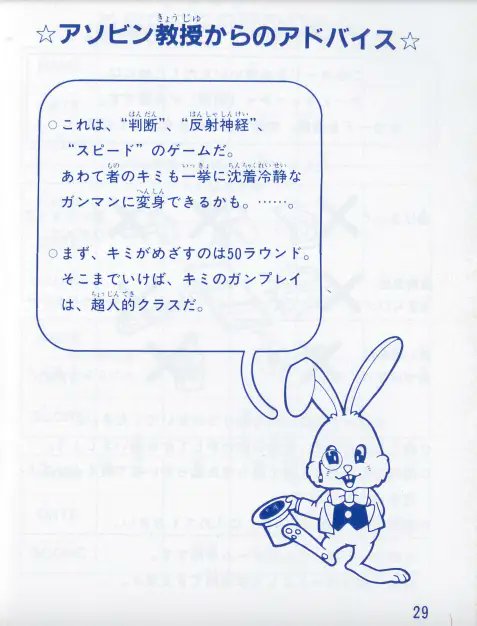 ☆アソビン教授からのアドバイス☆
○これは、“判断”、“反射神経”、
“スピード”のゲームだ。
あわて者のキミも一挙に沈着冷静な
ガンマンに変身できるかも。……。
○まず、キミがめざすのは50ラウンド。
そこまでいけば、キミのガンプレイ
は、超人的クラスだ。
29